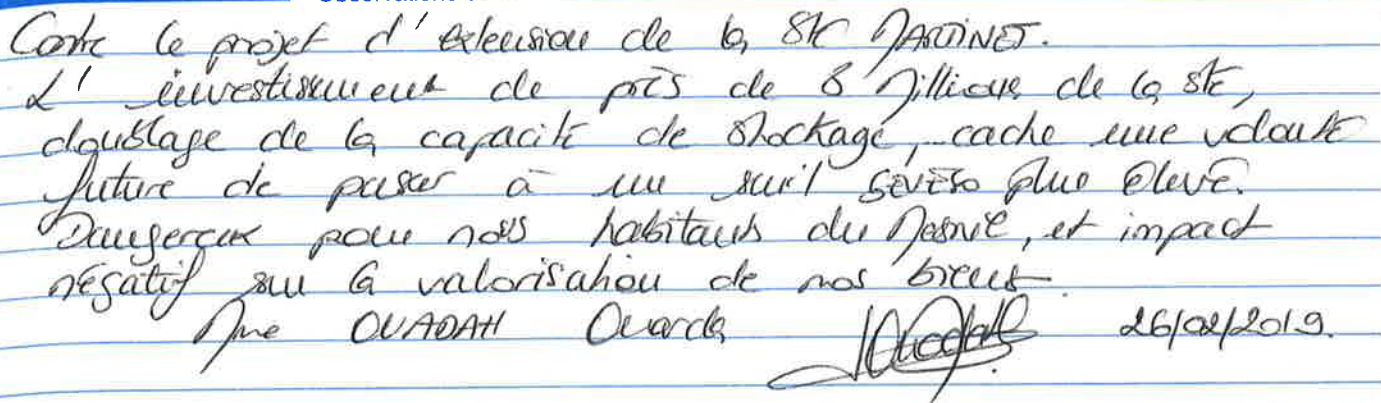 Contre le projet d'extension de la Sté MARTINET.
L'investissement de près de 8 Millions de la sté,
doublage de la capacité de stockage, cache une volonté
future de passer à un seuil SEVESO plus élevé.
Dangereux pour nous habitants du Mesnil, et impact
négatif sur la valorisation de nos biens.
Mme OUADAH Ouarda 26/02/2019.